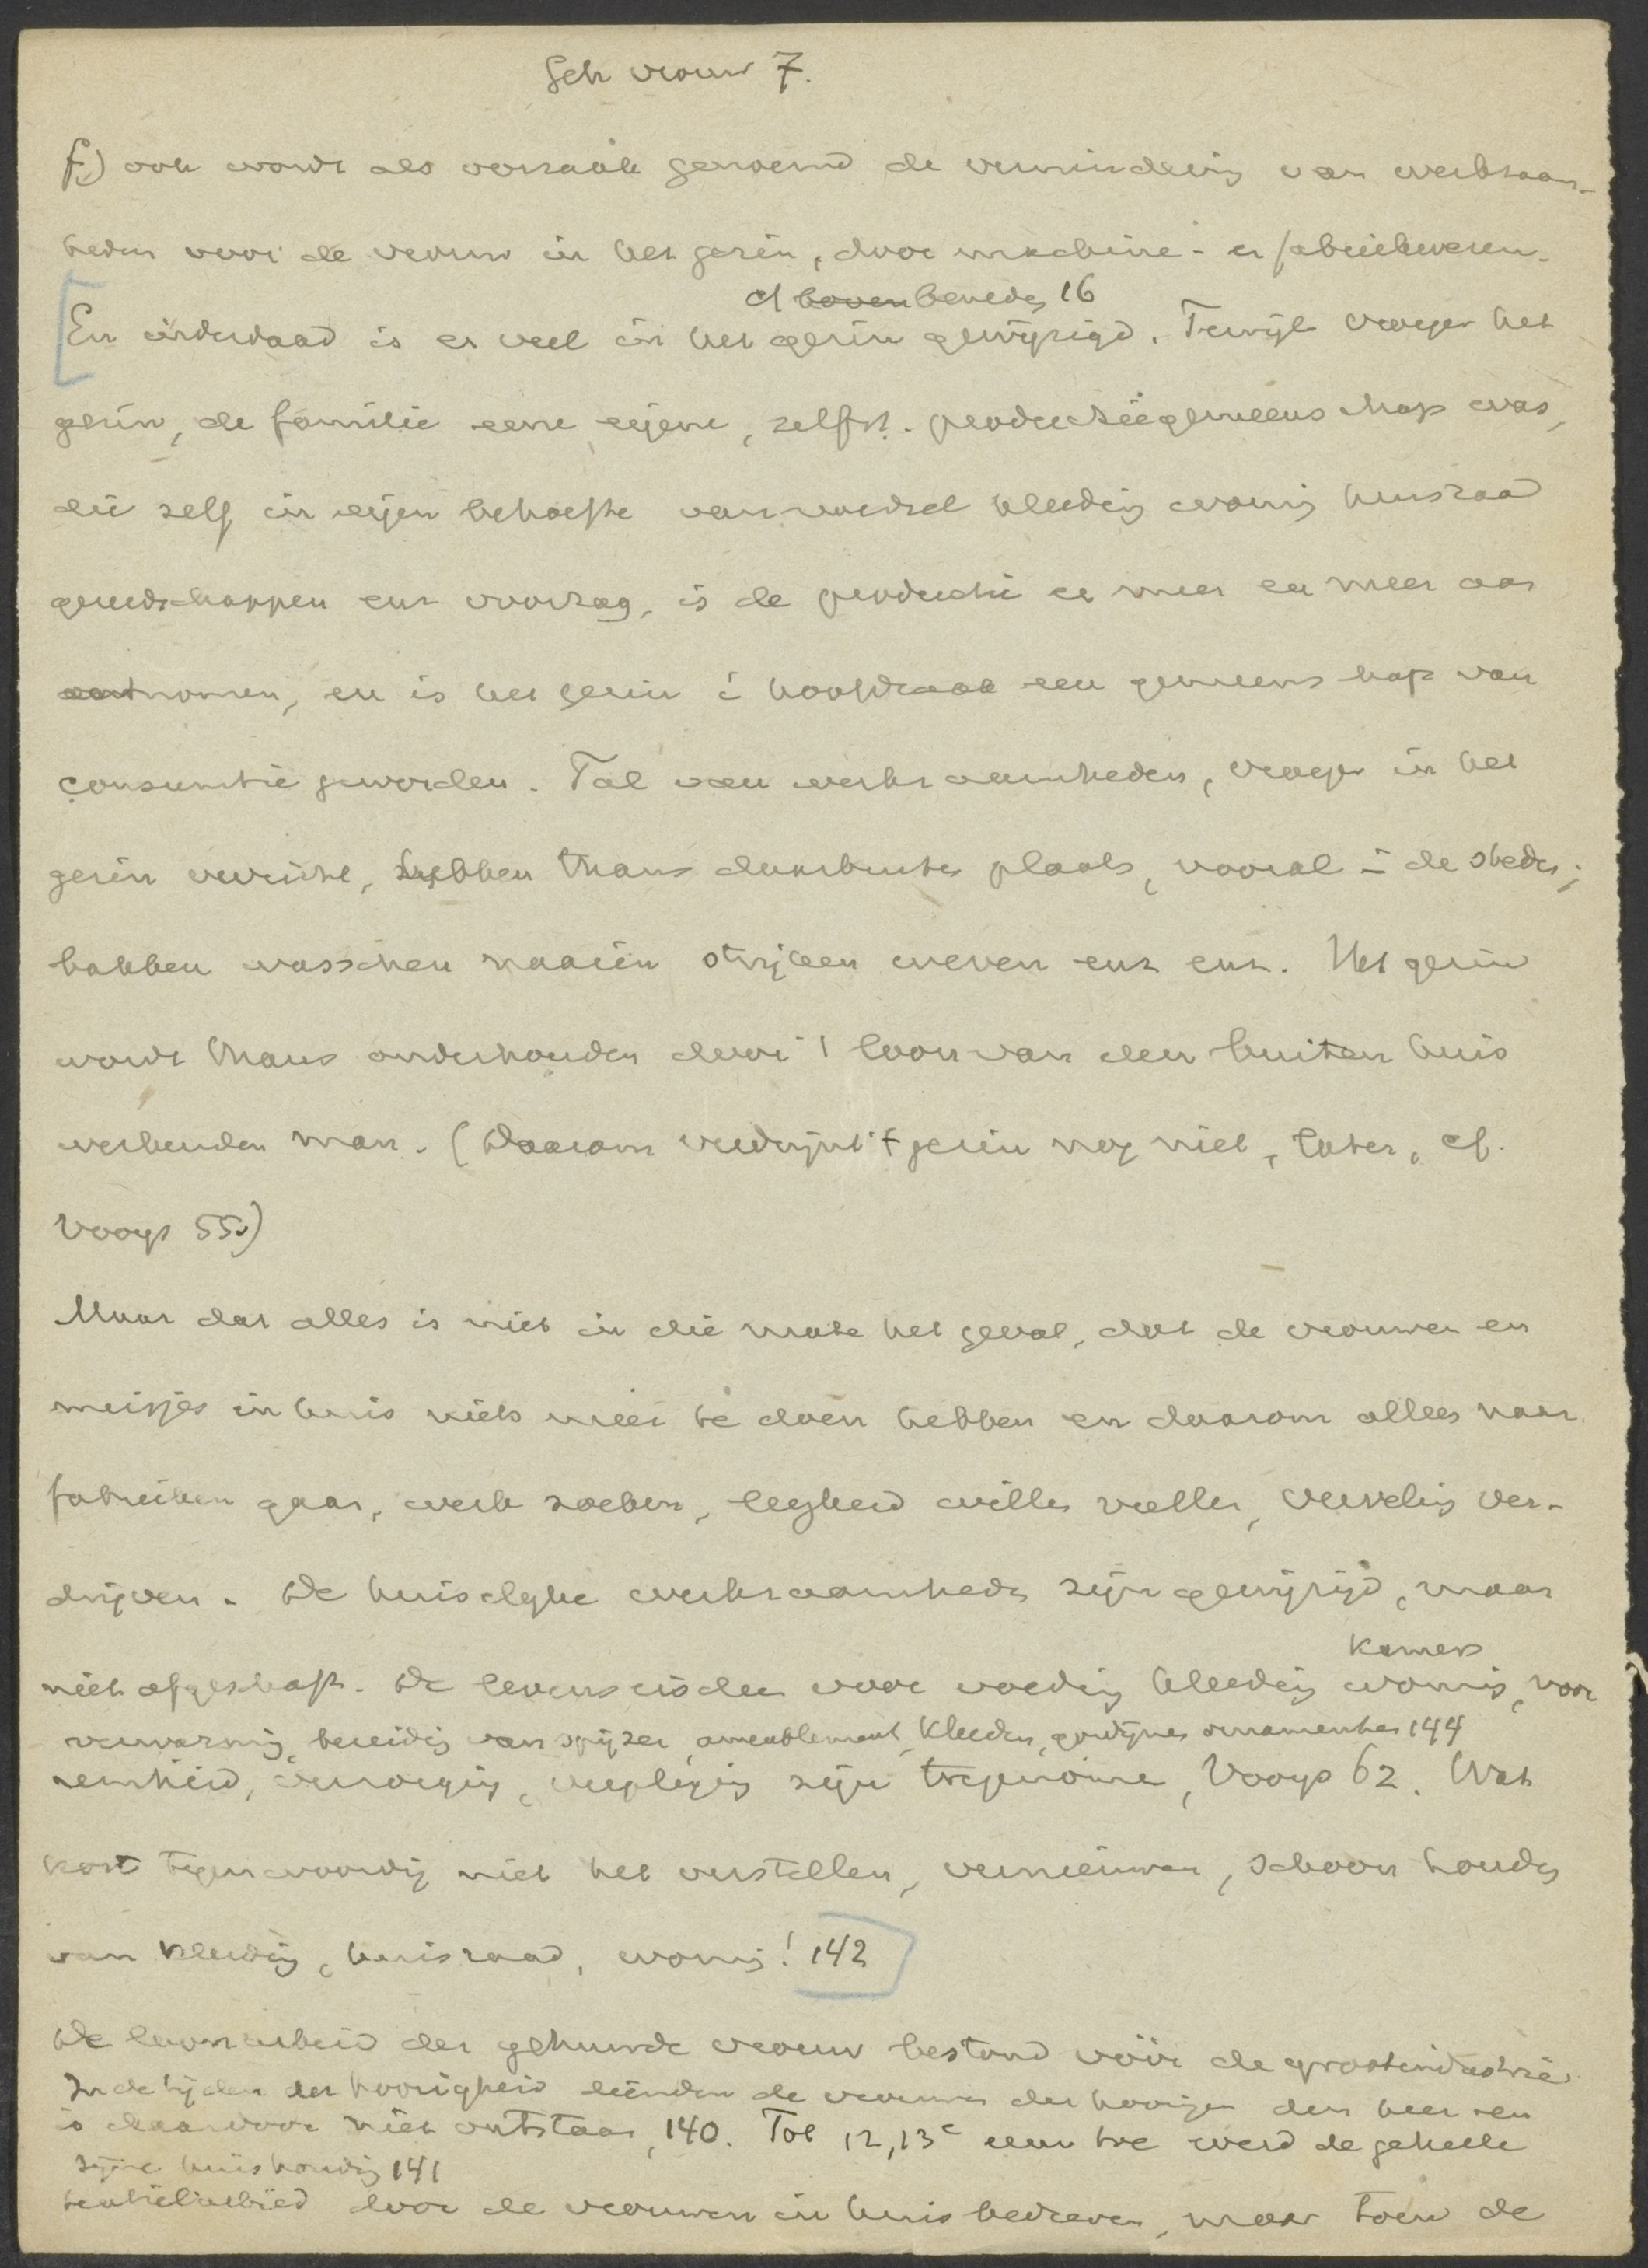 Geh vrouw 7.
f.) ook wordt als oorzaak genoemd de vermindering van werkzaam-
heden voor de vrouw in het gezin, door machine- en fabriekwezen.
cf boven beneden 16
En inderdaad is er veel in het gezin gewijzigd. Terwijl vroeger het
gezin, de familie eene eigene, zelfst. productiegemeenschap was,
die zelf in eigen behoefte van voedsel kleeding woning huisraad
gereedschappen enz voorzag, is de productie er meer en meer aan
ontnomen, en is het gezin i hoofdzaak een gemeenschap van
consumtie geworden. Tal van werkzaamheden, vroeger in het
gezin verricht, hebben thans daarbuiten plaats, vooral i de steden;
bakken wasschen naaien strijken weven enz enz. Het gezin
wordt thans onderhouden door 't loon van den buiten huis
werkenden man. (Daarom verdwijnt 't gezin nog niet, later, cf.
Vooys 55.)
Maar dat alles is niet in die mate het geval, dat de vrouwen en
meisjes in huis niets meer te doen hebben en daarom alles naar
fabrieken gaan, werk zoeken, leegheid willen vullen, verveling ver-
drijven. De huiselijke werkzaamheden zijn gewijzigd, maar
kamers
niet afgeschaft. De levenseischen voor voeding kleeding woning, voor
verwarming, bereiding van spijzen, ameublement, kleeden, gordijnen ornamenten 144
reinheid, verzorging, verpleging zijn toegenomen, Vooys 62. Wat
kost tegenwoordig niet het verstellen, vernieuwen, schoon houden
van kleeding, huisraad, woning! 142
De loonarbeid der gehuwde vrouw bestond vóór de grootindustrie
In de tijden der hoorigheid dienden de vrouwen der hoorigen den heer en
is daardoor niet ontstaan, 140. Tot 12, 13e eeuw toe werd de geheele
zijne huishouding 141
textielarbeid door de vrouwen in huis bedreven, maar toen de